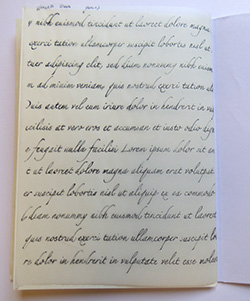 y nibh euismod tincidunt ut laoreet dolore magna
exerci tation ullamcorper suscipit lobortis nisl ut
tuer adipiscing elit, sed diam nonummy nibh euism
m ad minim veniam, quis nostrud exerci tation ull
Duis autem vel eum iriure dolor in hendrerit in vulp
acilisis at vero eros et accumsan et iusto odio dign
e feugait nulla facilisi. Lorem ipsum dolor sit am
t ut laoreet dolore magna aliquam erat volutpat
er suscipit lobortis nisl ut aliquip ex ea commodo
d diam nonummy nibh euismod tincidunt ut laoreet
quis nostrud exerci tation ullamcorper suscipit lo
re dolor in hendrerit in vulputate velit esse molest